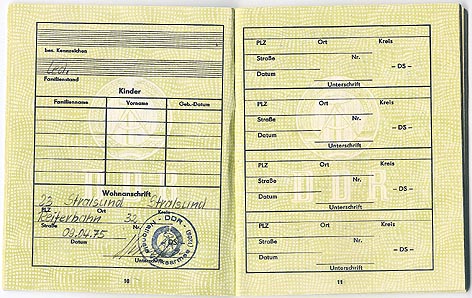 bes. Kennzeichen
led.
Familienstand
Kinder
Familienname Vorname Geb.-Datum
Wohnanschrift
23 Stralsund Stralsund
PLZ Ort Kreis
Reiterbahn 32
Straße Nr.
09.04.75
Datum -DS-
Unterschrift
DDR
10
PLZ Ort Kreis
Straße Nr.
Datum -DS-
Unterschrift
PLZ Ort Kreis
Straße Nr.
Datum -DS-
Unterschrift
PLZ Ort Kreis
Straße Nr.
Datum -DS-
Unterschrift
PLZ Ort Kreis
Straße Nr.
Datum -DS-
Unterschrift
DDR
11